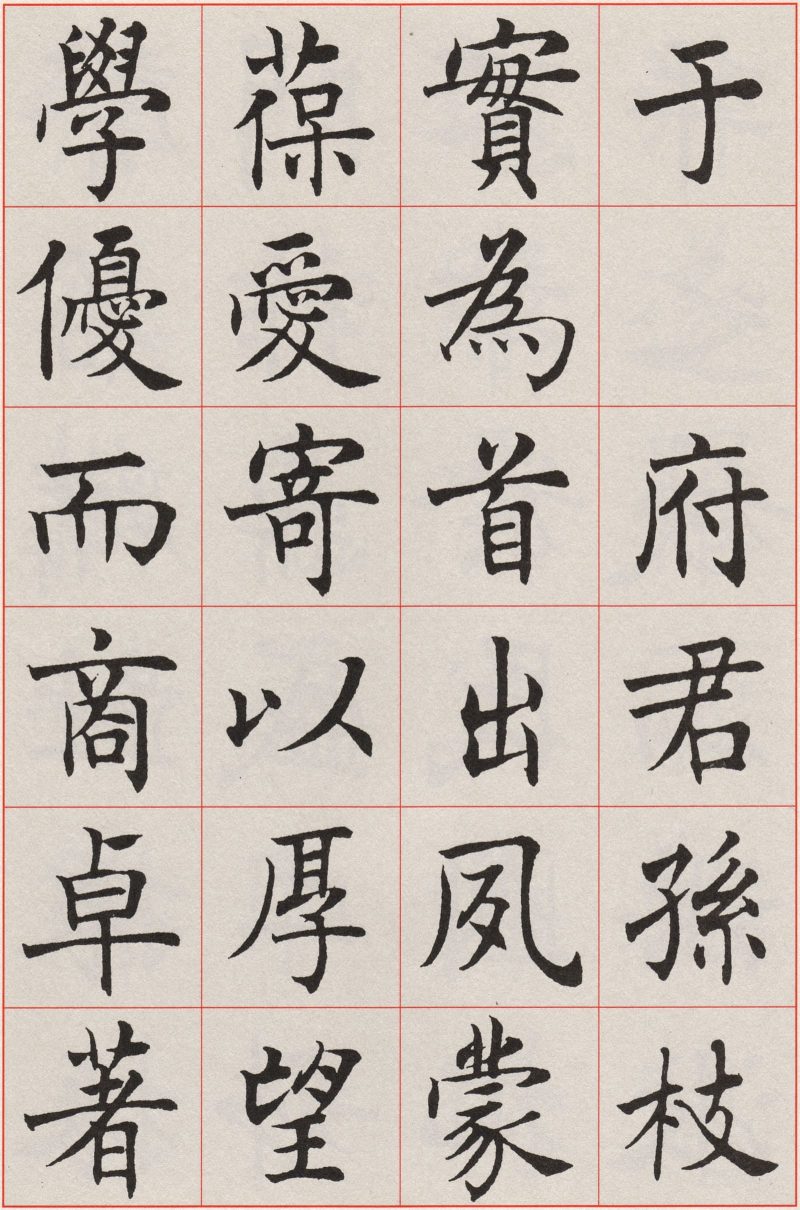 于　府君孫枝
實為首出夙蒙
葆愛寄以厚望
學優而商卓著